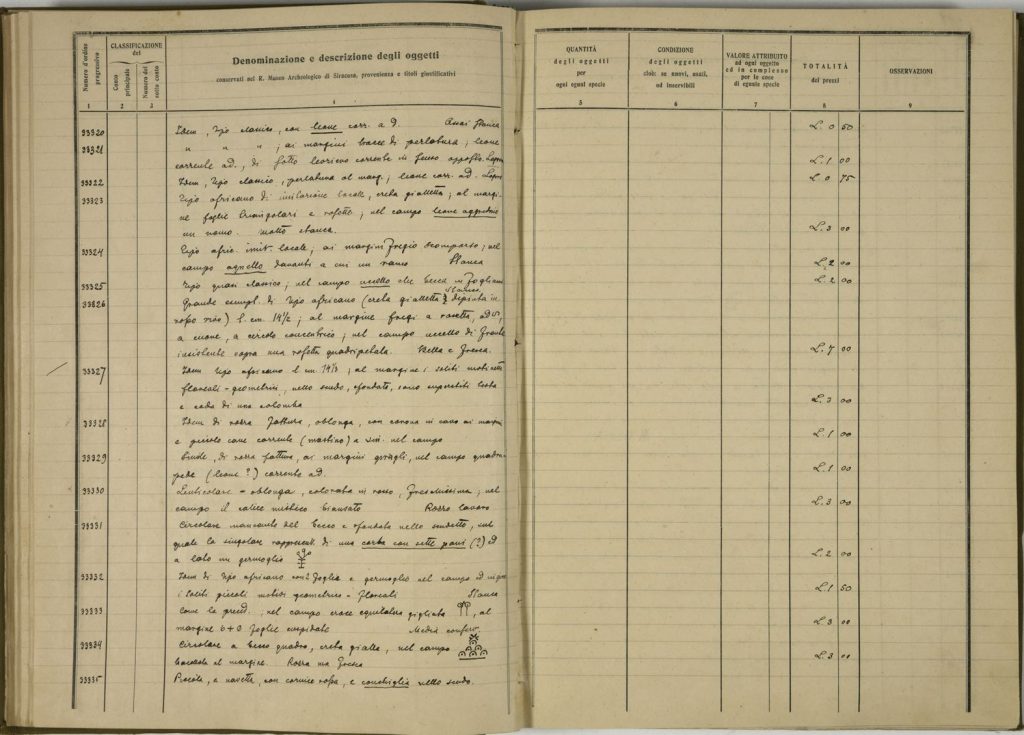 Numero d'ordine progressivo
CLASSIFICAZIONE del
Conto principale
Numero del sotto conto
Denominazione e descrizione degli oggetti
conservati nel R. Museo Archeologico di Siracusa, provenienza e titoli giustificativi
QUANTITÀ degli oggetti per ogni egual specie
CONDIZIONE degli oggetti cioè: se nuovi, usati, od inservibili
VALORE ATTRIBUITO ad ogni oggetto ed in complesso per le cose di eguale specie
TOTALITÀ dei prezzi
OSSERVAZIONI
1 2 3 4 5 6 7 8 9
33320 Idem, tipo classico, con leone corr. a d. Assai stanca L. 0 50
33321 " " " ; ai margini bacce di perlatura; leone
corrente a d., di sotto corrente in senso opposto. L. 1 00
33322 Idem, tipo classico, perlatura al marg.; leone corr. a d. L. 0 75
33323 Tipo africano di imitazione locale, creta gialletta; al margi-
ne foglie triangolari e rosette; nel campo leone aggredente
un uomo. Molto stanca. L. 3 00
33324 Tipo afric. imit. locale; ai margini fregio scomparso; nel
campo agnello davanti a cui un ramo Stanca L. 2 00
33325 Tipo quasi classico; nel campo uccello che becca un fogliame L. 2 00
Stanca
33326 Grande esempl. di tipo africano (creta gialletta dipinta in
rosso vivo) l. cm. 14 1/2; al margine fregi a rosetta, ad
a cuore, a circolo concentrico; nel campo uccello di fronte
insistente sopra una rosetta quadripetala. Bella e fresca. L. 7 00
33327 Idem tipo africano l. cm. 14 1/2; al margine i soliti motivetti
floreali-geometrici, nello scudo, sfondato, sono superstiti testa
e coda di una colomba L. 3 00
33328 Idem di rozza fattura, oblonga, con corona in cavo ai margini
e piccolo cane corrente (mastino) a sin. nel campo L. 1 00
33329 Simile, di rozza fattura, ai margini, nel campo quadru-
pede (leone?) corrente a d. L. 1 00
33330 Lenticolare-oblonga, colorata in rosso, freschissima; nel
campo il calice mistico biansato Rozzo lavoro L. 3 00
33331 Circolare mancante del becco e sfondata nello scudetto, nel
quale la singolare rappresent. di una corba con sette pani (?) ed
a lato un germoglio L. 2 00
33332 Idem di tipo africano con foglia e germoglio nel campo ed
i soliti piccoli motivi geometrico-floreali Stanca L. 1 50
33333 Come la preced.; nel campo croce equilatera gigliata, al
margine 6+6 foglie cuspidate Media conserv. L. 3 00
33334 Circolare a becco quadro, creta gialla, nel campo
al margine. Rozza ma fresca L. 3 00
33335 Piccola, a navetta, con cornice rossa, e conchiglia nello scudo.